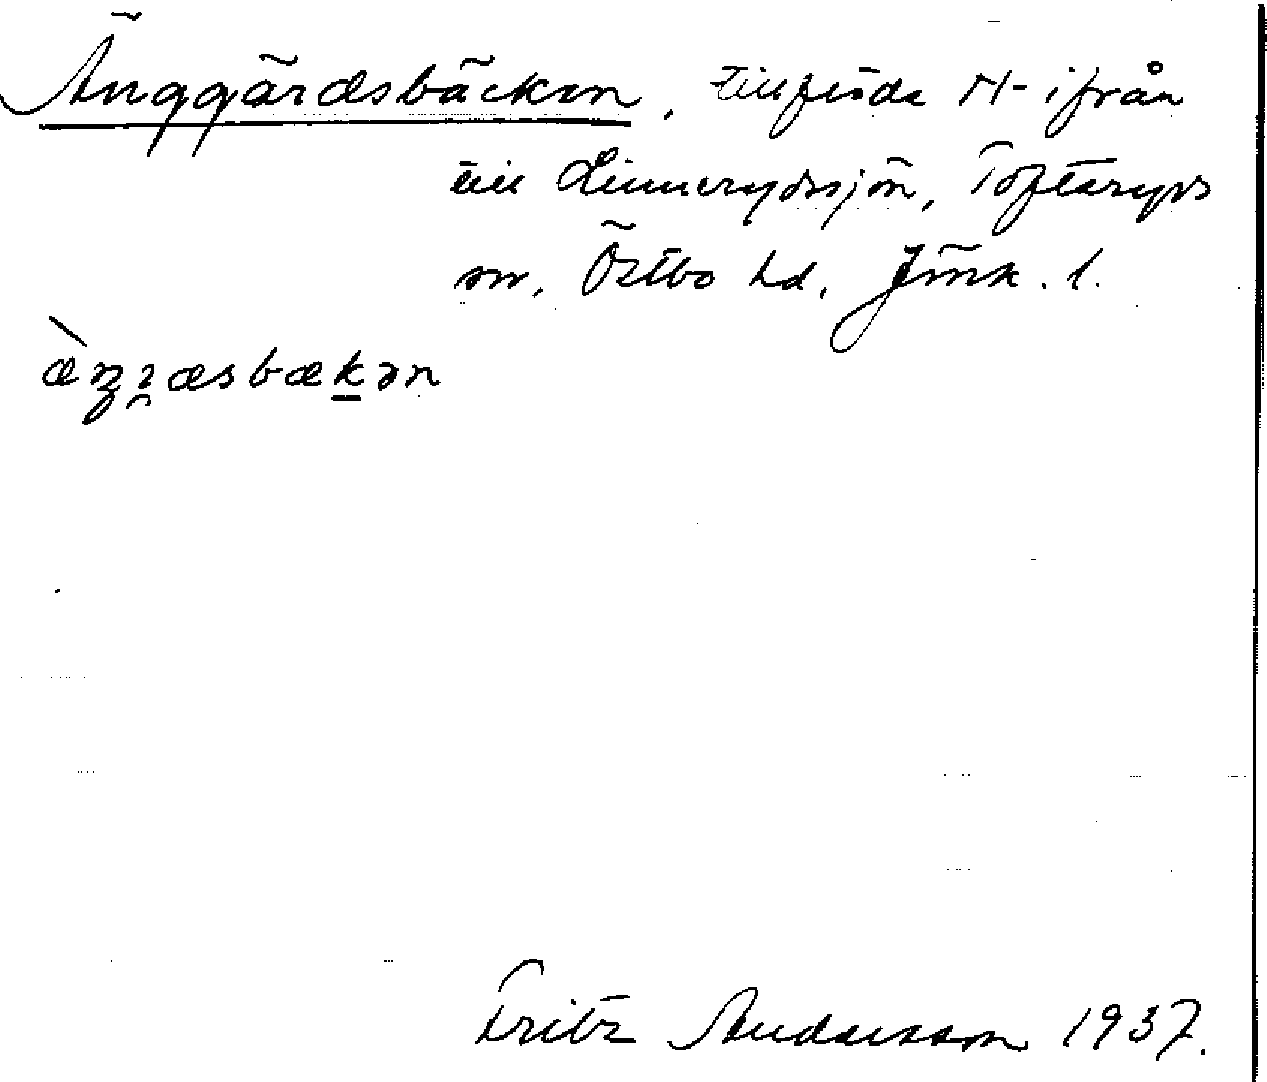 Änggärdsbäcken, tillflöde N- ifrån
till Linnerydssjön, Tofteryds
sn, Östbo hd, Jönk. l.
Fritz Andersson 1937.